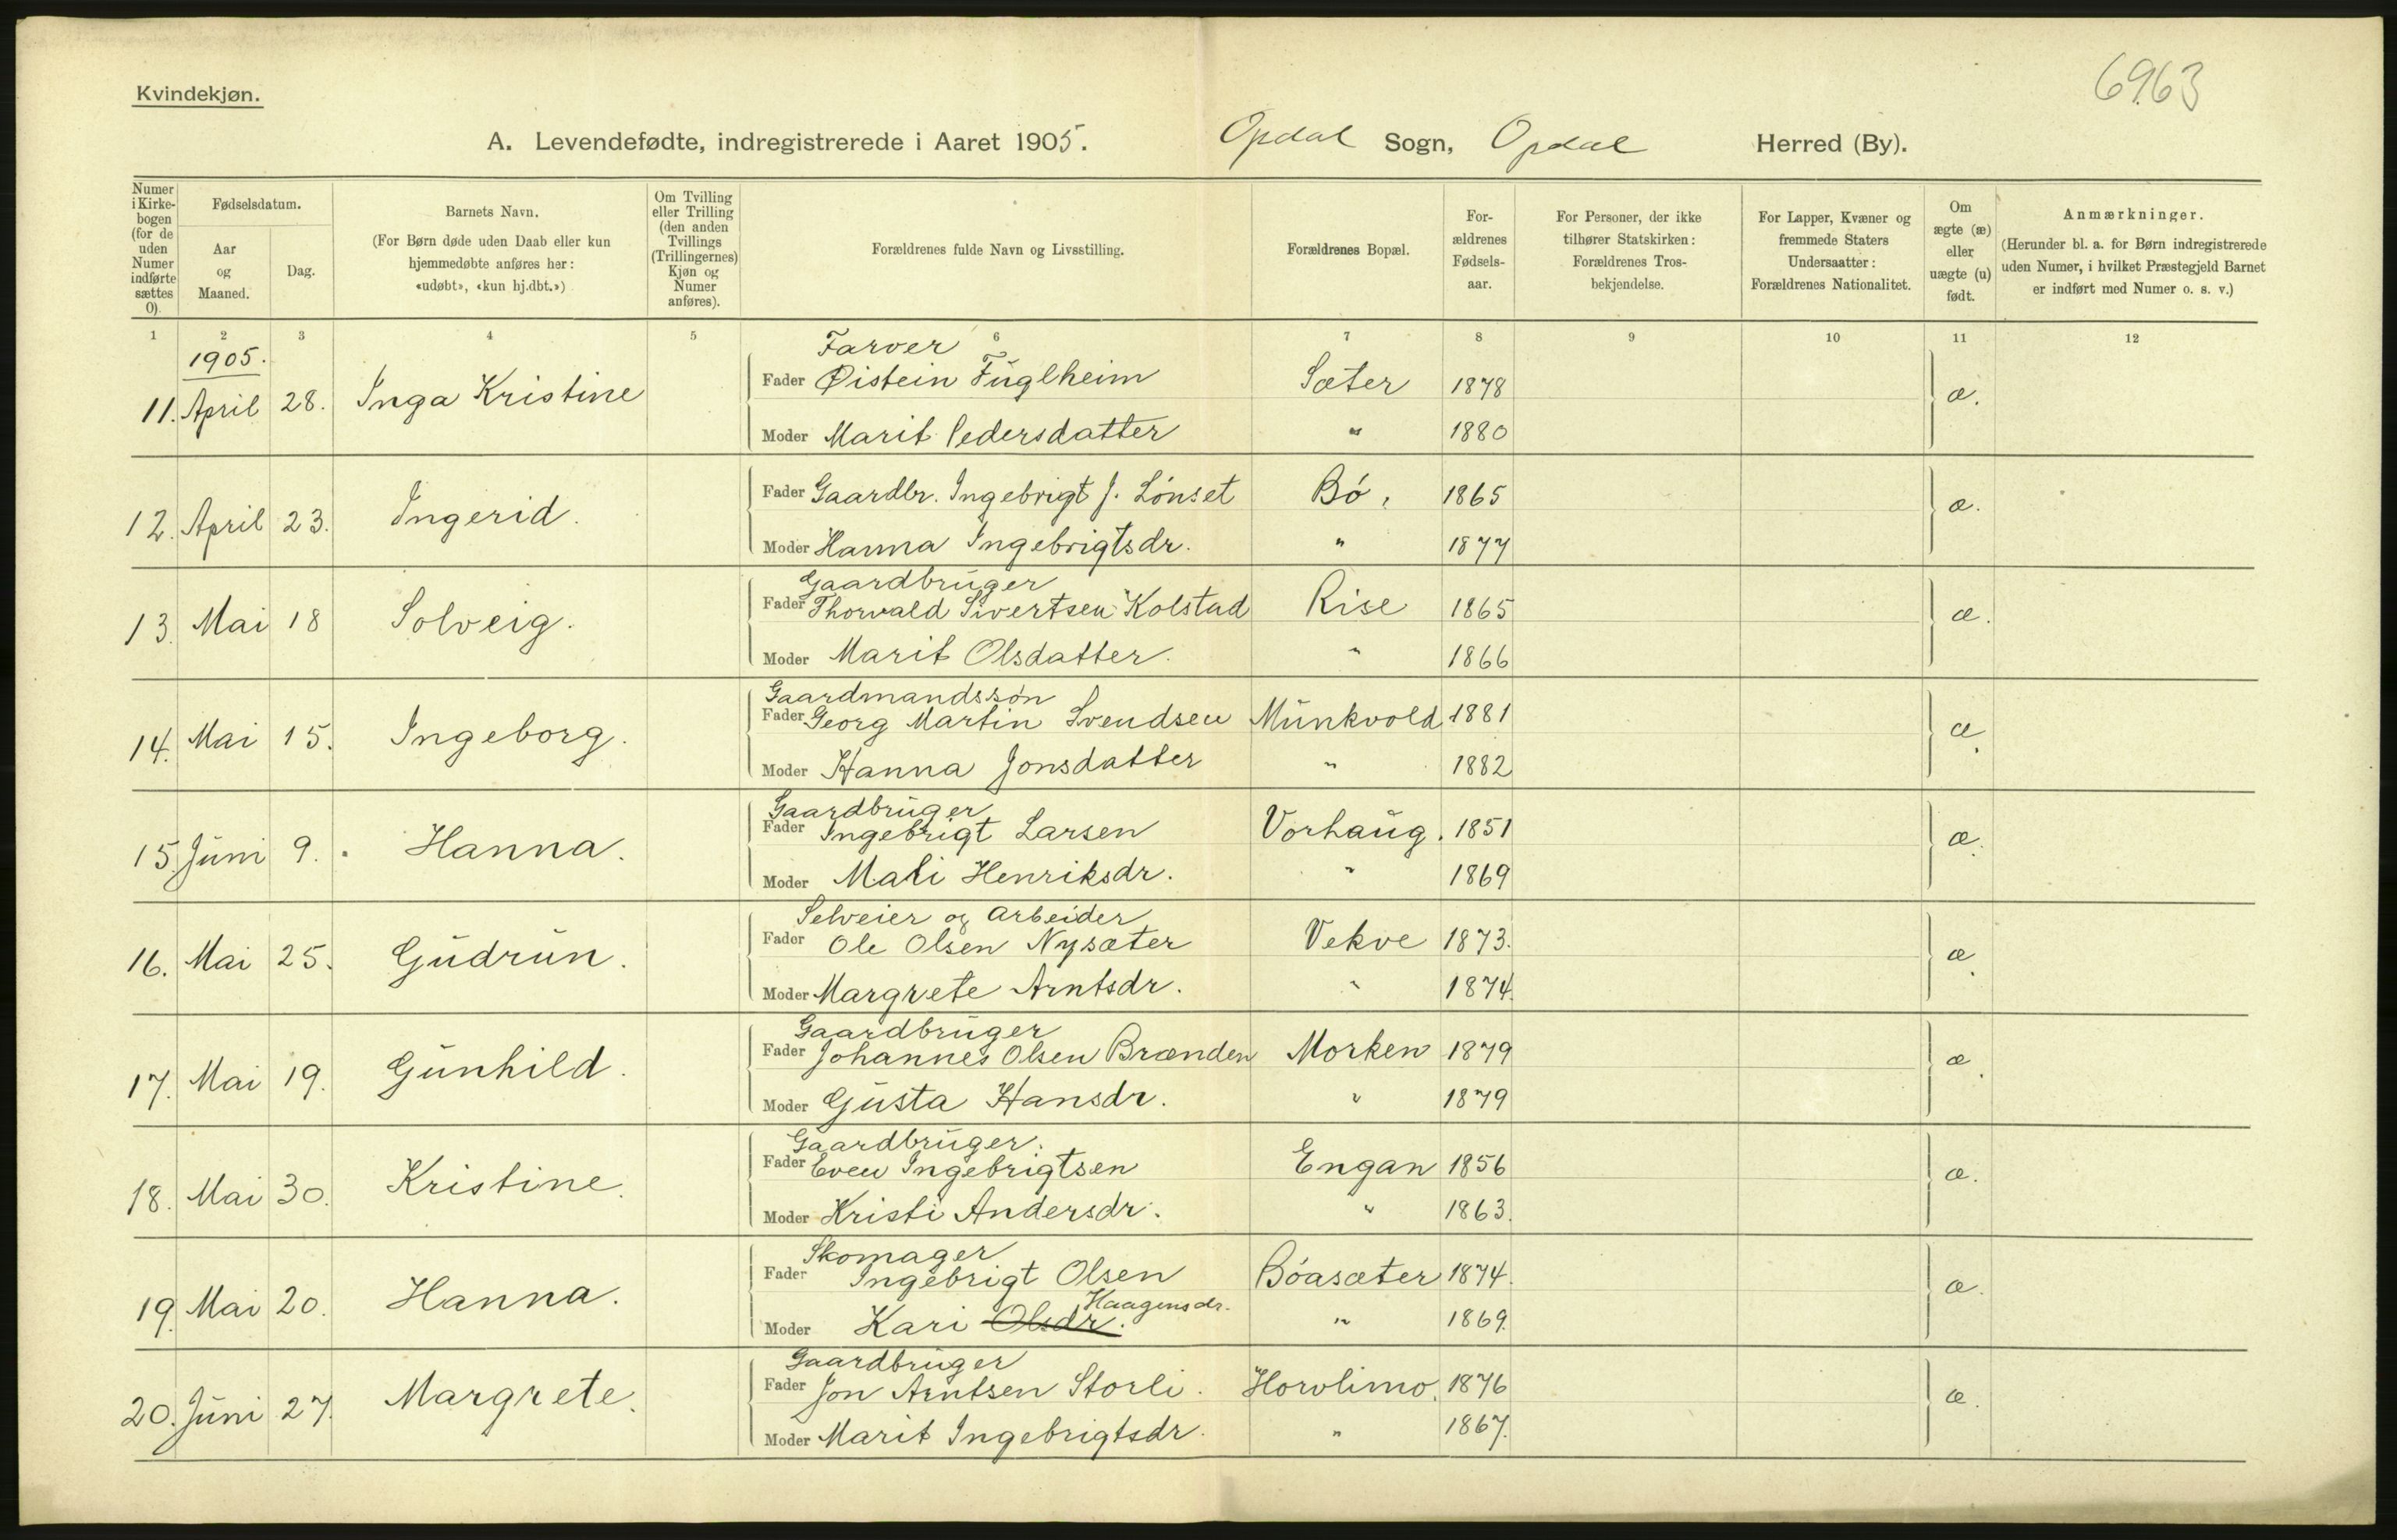 6963
Kvindekjøn.
A. Levendefødte, indregistrerede i Aaret 1905. Opdal Sogn, Opdal Herred (By).
Numer i Kirkebogen (for de uden Numer indførte sættes 0).
Fødselsdatum.
Aar og Maaned.
Dag.
Barnets Navn.
(For Børn døde uden Daab eller kun hjemmedøbte anføres her: «udøbt», «kun hj.dbt.»)
Om Tvilling eller Trilling (den anden Tvillings (Trillingernes) Kjøn og Numer anføres).
Forældrenes fulde Navn og Livsstilling.
Forældrenes Bopæl.
Forældrenes Fødselsaar.
For Personer, der ikke tilhører Statskirken: Forældrenes Trosbekjendelse.
For Lapper, Kvæner og fremmede Staters Undersaatter: Forældrenes Nationalitet.
Om ægte (æ) eller uægte (u) født.
Anmærkninger.
(Herunder bl. a. for Børn indregistrerede uden Numer, i hvilket Præstegjeld Barnet er indført med Numer o. s. v.)
1 2 3 4 5 6 7 8 9 10 11 12
1905.
Farver
11. April 28. Inga Kristine Fader Øistein Fuglheim Sæter 1878 æ.
Moder Marit Pedersdatter " 1880
12. April 23. Ingerid. Fader Gaardbr. Ingebrigt J. Lönset Bö, 1865 æ.
Moder Hanna Ingebrigtsdr. " 1877
Gaardbruger
13. Mai 18 Solveig. Fader Thorvald Sivertsen Kolstad Rise 1865 æ.
Moder Marit Olsdatter. " 1866
Gaardmandssön
14. Mai 15. Ingeborg. Fader Georg Martin Svendsen Munkvold 1881 æ.
Moder Hanna Jonsdatter " 1882
Gaardbruger
15. Juni 9. Hanna. Fader Ingebrigt Larsen Vorhaug. 1851 æ.
Moder Mali Henriksdr. " 1869
Selveier og Arbeider
16. Mai 25. Gudrun. Fader Ole Olsen Nysæter Vekve 1873. æ.
Moder Margrete Arntsdr. " 1874.
Gaardbruger
17. Mai 19. Gunhild. Fader Johannes Olsen Brænden Morken 1879 æ.
Moder Gusta Hansdr. " 1879
Gaardbruger.
18. Mai 30. Kristine. Fader Even Ingebrigtsen Engan 1856 æ.
Moder Kristi Andersdr. " 1863.
Skomager
19. Mai 20. Hanna. Fader Ingebrigt Olsen Böasæter 1874. æ.
Moder Kari Olsdr. Haagensdr. " 1869.
Gaardbruger
20. Juni 27. Margrete. Fader Jon Arntsen Storli. Horvlimo. 1876 æ.
Moder Marit Ingebrigtsdr. " 1867.